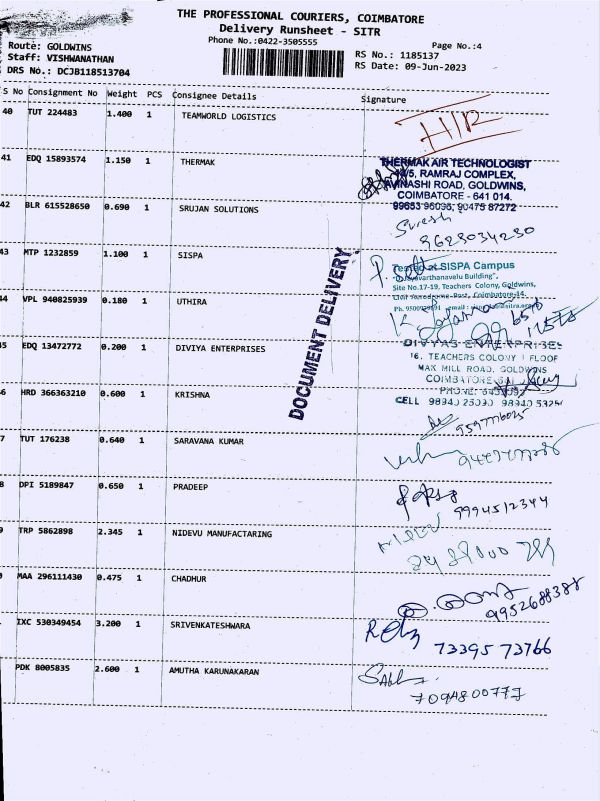 THE PROFESSIONAL COURIERS, COIMBATORE
Delivery Runsheet - SITR
Phone No.:0422-3505555
Page No.:4
Route: GOLDWINS
Staff: VISHWANATHAN
DRS No.: DCJB118513704
RS No.: 1185137
RS Date: 09-Jun-2023
S No Consignment No Weight PCS Consignee Details Signature
40 TUT 224483 1.400 1 TEAMWORLD LOGISTICS
41 EDQ 15893574 1.150 1 THERMAK
THERMAK AIR TECHNOLOGIST
RAMRAJ COMPLEX,
AVINASHI ROAD, GOLDWINS,
COIMBATORE - 641 014.
90475 87272
42 BLR 615528650 0.690 1 SRUJAN SOLUTIONS
Suresh
9623034230
43 MTP 1232859 1.100 1 SISPA
at SISPA Campus
Building",
Site No.17-19, Teachers Colony, Goldwins,
Civil Aerodrome Post, Coimbatore-14.
44 VPL 940825939 0.180 1 UTHIRA
DOCUMENT DELIVERY
5 EDQ 13472772 0.200 1 DIVIYA ENTERPRISES
DIVYAS ENTERPRISES
16, TEACHERS COLONY I FLOOR
MAX MILL ROAD, GOLDWINS
COIMBATORE
PHONE:
CELL 98940 25030
6 HRD 366363210 0.600 1 KRISHNA
7 TUT 176238 0.640 1 SARAVANA KUMAR
8 DPI 5189847 0.650 1 PRADEEP
9994512344
9 TRP 5862898 2.345 1 NIDEVU MANUFACTARING
0 MAA 296111430 0.475 1 CHADHUR
9952688388
1 IXC 530349454 3.200 1 SRIVENKATESHWARA
73395 73766
PDK 8005835 2.600 1 AMUTHA KARUNAKARAN